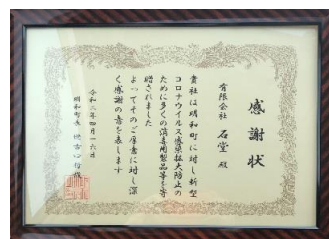 感謝状
有限会社 石堂 殿
貴社は明和町に対し新型
コロナウイルス感染拡大防止の
ために多くの消毒用製品等を寄
贈されました
よってそのご厚意に対し深
く感謝の意を表します
令和二年四月一六日
明和町長